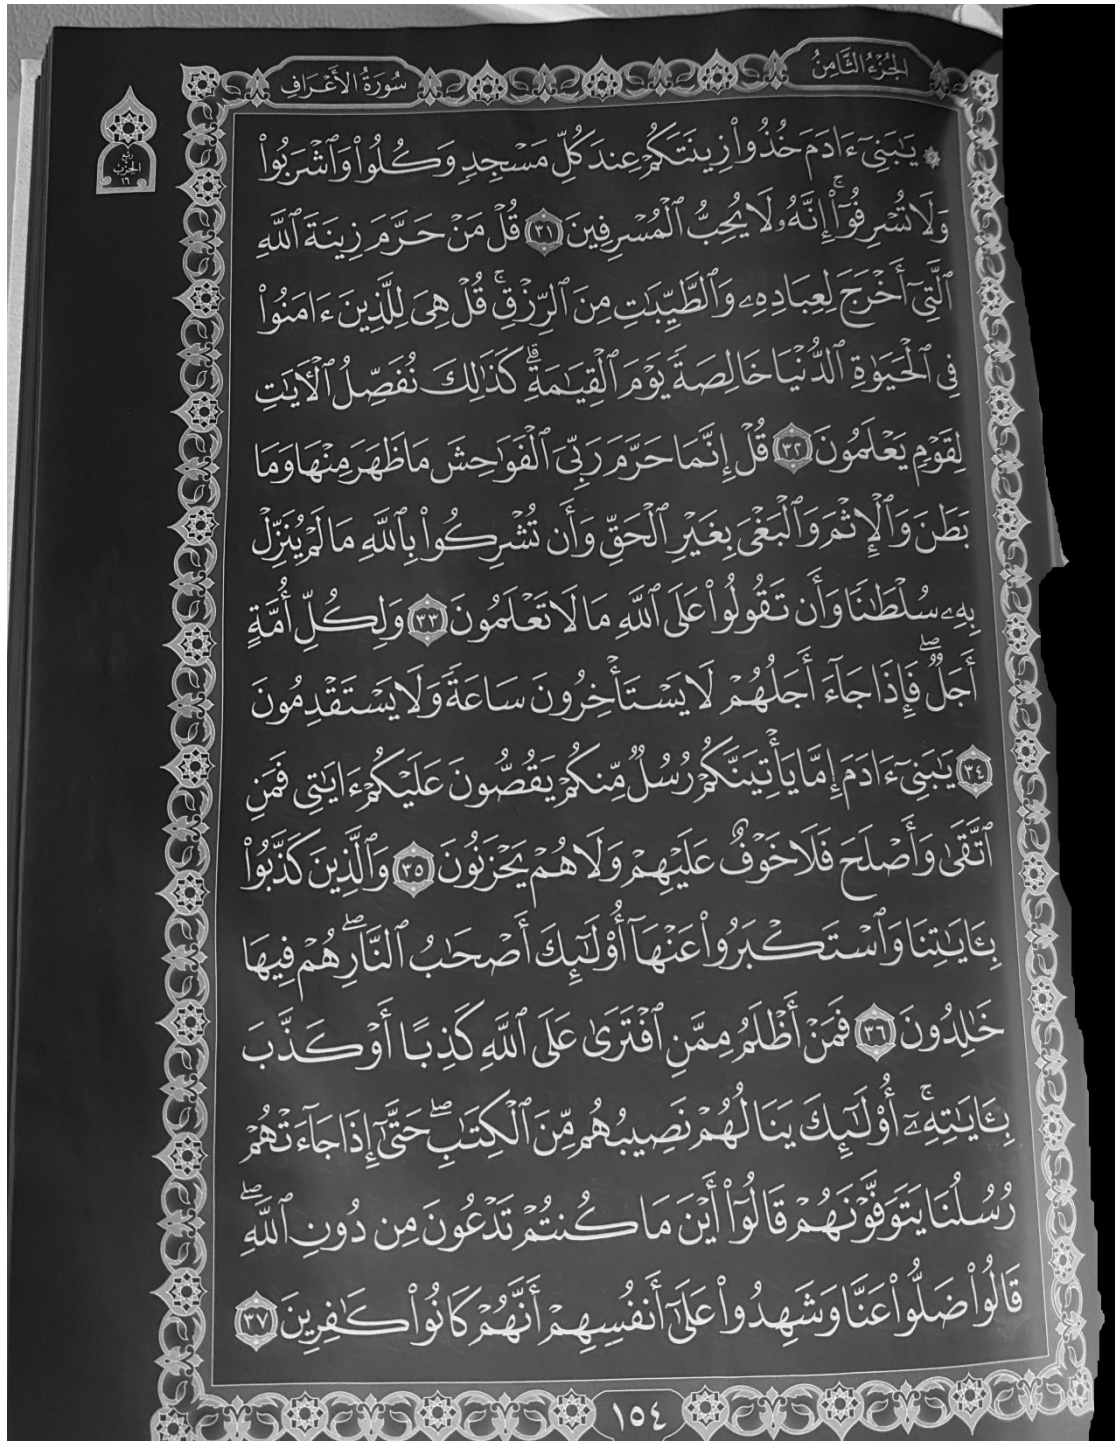 الجزء الثامن
سورة الأعراف
ربع
الحزب
١٦
۞ يَـٰبَنِىٓ ءَادَمَ خُذُوا۟ زِينَتَكُمْ عِندَ كُلِّ مَسْجِدٍ وَكُلُوا۟ وَٱشْرَبُوا۟
وَلَا تُسْرِفُوٓا۟ ۚ إِنَّهُۥ لَا يُحِبُّ ٱلْمُسْرِفِينَ ٣١ قُلْ مَنْ حَرَّمَ زِينَةَ ٱللَّهِ
ٱلَّتِىٓ أَخْرَجَ لِعِبَادِهِۦ وَٱلطَّيِّبَـٰتِ مِنَ ٱلرِّزْقِ ۚ قُلْ هِىَ لِلَّذِينَ ءَامَنُوا۟
فِى ٱلْحَيَوٰةِ ٱلدُّنْيَا خَالِصَةً يَوْمَ ٱلْقِيَـٰمَةِ ۗ كَذَٰلِكَ نُفَصِّلُ ٱلْـَٔايَـٰتِ
لِقَوْمٍ يَعْلَمُونَ ٣٢ قُلْ إِنَّمَا حَرَّمَ رَبِّىَ ٱلْفَوَٰحِشَ مَا ظَهَرَ مِنْهَا وَمَا
بَطَنَ وَٱلْإِثْمَ وَٱلْبَغْىَ بِغَيْرِ ٱلْحَقِّ وَأَن تُشْرِكُوا۟ بِٱللَّهِ مَا لَمْ يُنَزِّلْ
بِهِۦ سُلْطَـٰنًا وَأَن تَقُولُوا۟ عَلَى ٱللَّهِ مَا لَا تَعْلَمُونَ ٣٣ وَلِكُلِّ أُمَّةٍ
أَجَلٌ ۖ فَإِذَا جَآءَ أَجَلُهُمْ لَا يَسْتَأْخِرُونَ سَاعَةً وَلَا يَسْتَقْدِمُونَ
٣٤ يَـٰبَنِىٓ ءَادَمَ إِمَّا يَأْتِيَنَّكُمْ رُسُلٌ مِّنكُمْ يَقُصُّونَ عَلَيْكُمْ ءَايَـٰتِى فَمَنِ
ٱتَّقَىٰ وَأَصْلَحَ فَلَا خَوْفٌ عَلَيْهِمْ وَلَا هُمْ يَحْزَنُونَ ٣٥ وَٱلَّذِينَ كَذَّبُوا۟
بِـَٔايَـٰتِنَا وَٱسْتَكْبَرُوا۟ عَنْهَآ أُو۟لَـٰٓئِكَ أَصْحَـٰبُ ٱلنَّارِ ۖ هُمْ فِيهَا
خَـٰلِدُونَ ٣٦ فَمَنْ أَظْلَمُ مِمَّنِ ٱفْتَرَىٰ عَلَى ٱللَّهِ كَذِبًا أَوْ كَذَّبَ
بِـَٔايَـٰتِهِۦٓ ۚ أُو۟لَـٰٓئِكَ يَنَالُهُمْ نَصِيبُهُم مِّنَ ٱلْكِتَـٰبِ ۖ حَتَّىٰٓ إِذَا جَآءَتْهُمْ
رُسُلُنَا يَتَوَفَّوْنَهُمْ قَالُوٓا۟ أَيْنَ مَا كُنتُمْ تَدْعُونَ مِن دُونِ ٱللَّهِ ۖ
قَالُوا۟ ضَلُّوا۟ عَنَّا وَشَهِدُوا۟ عَلَىٰٓ أَنفُسِهِمْ أَنَّهُمْ كَانُوا۟ كَـٰفِرِينَ ٣٧
١٥٤